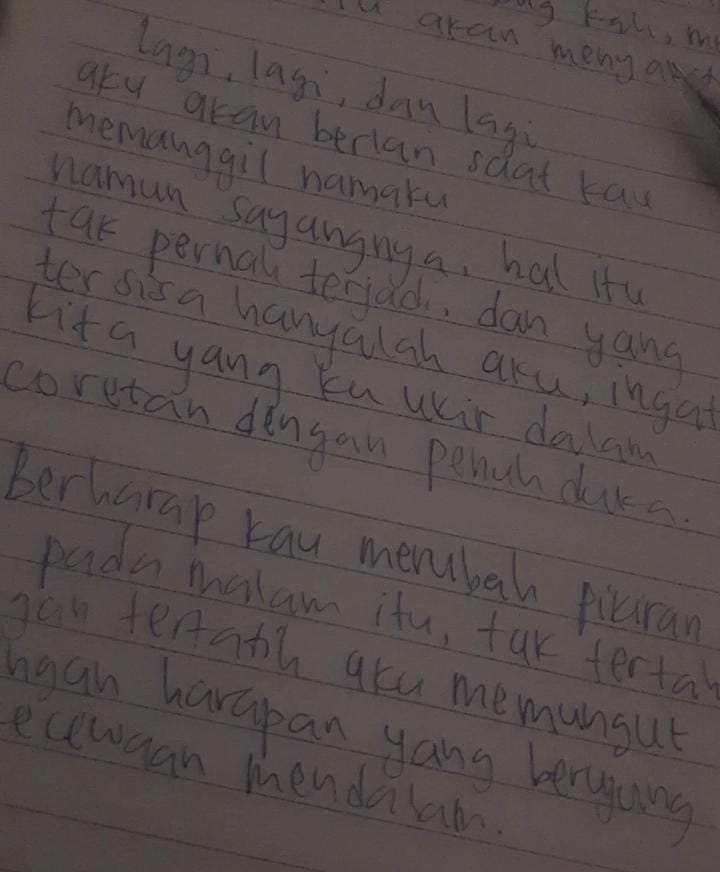 akan
lagi, lagi, dan lagi
aku akan berlari saat kau
memanggil namaku
namun sayangnya, hal itu
tak pernah terjadi, dan yang
tersisa hanyalah aku, ingat
kita yang ku ukir dalam
coretan dengan penuh duka.
Berharap kau merubah pikiran
pada malam itu, tak tertah
gan tertatih aku memungut
ngan harapan yang berujung
ecewaan mendalam.